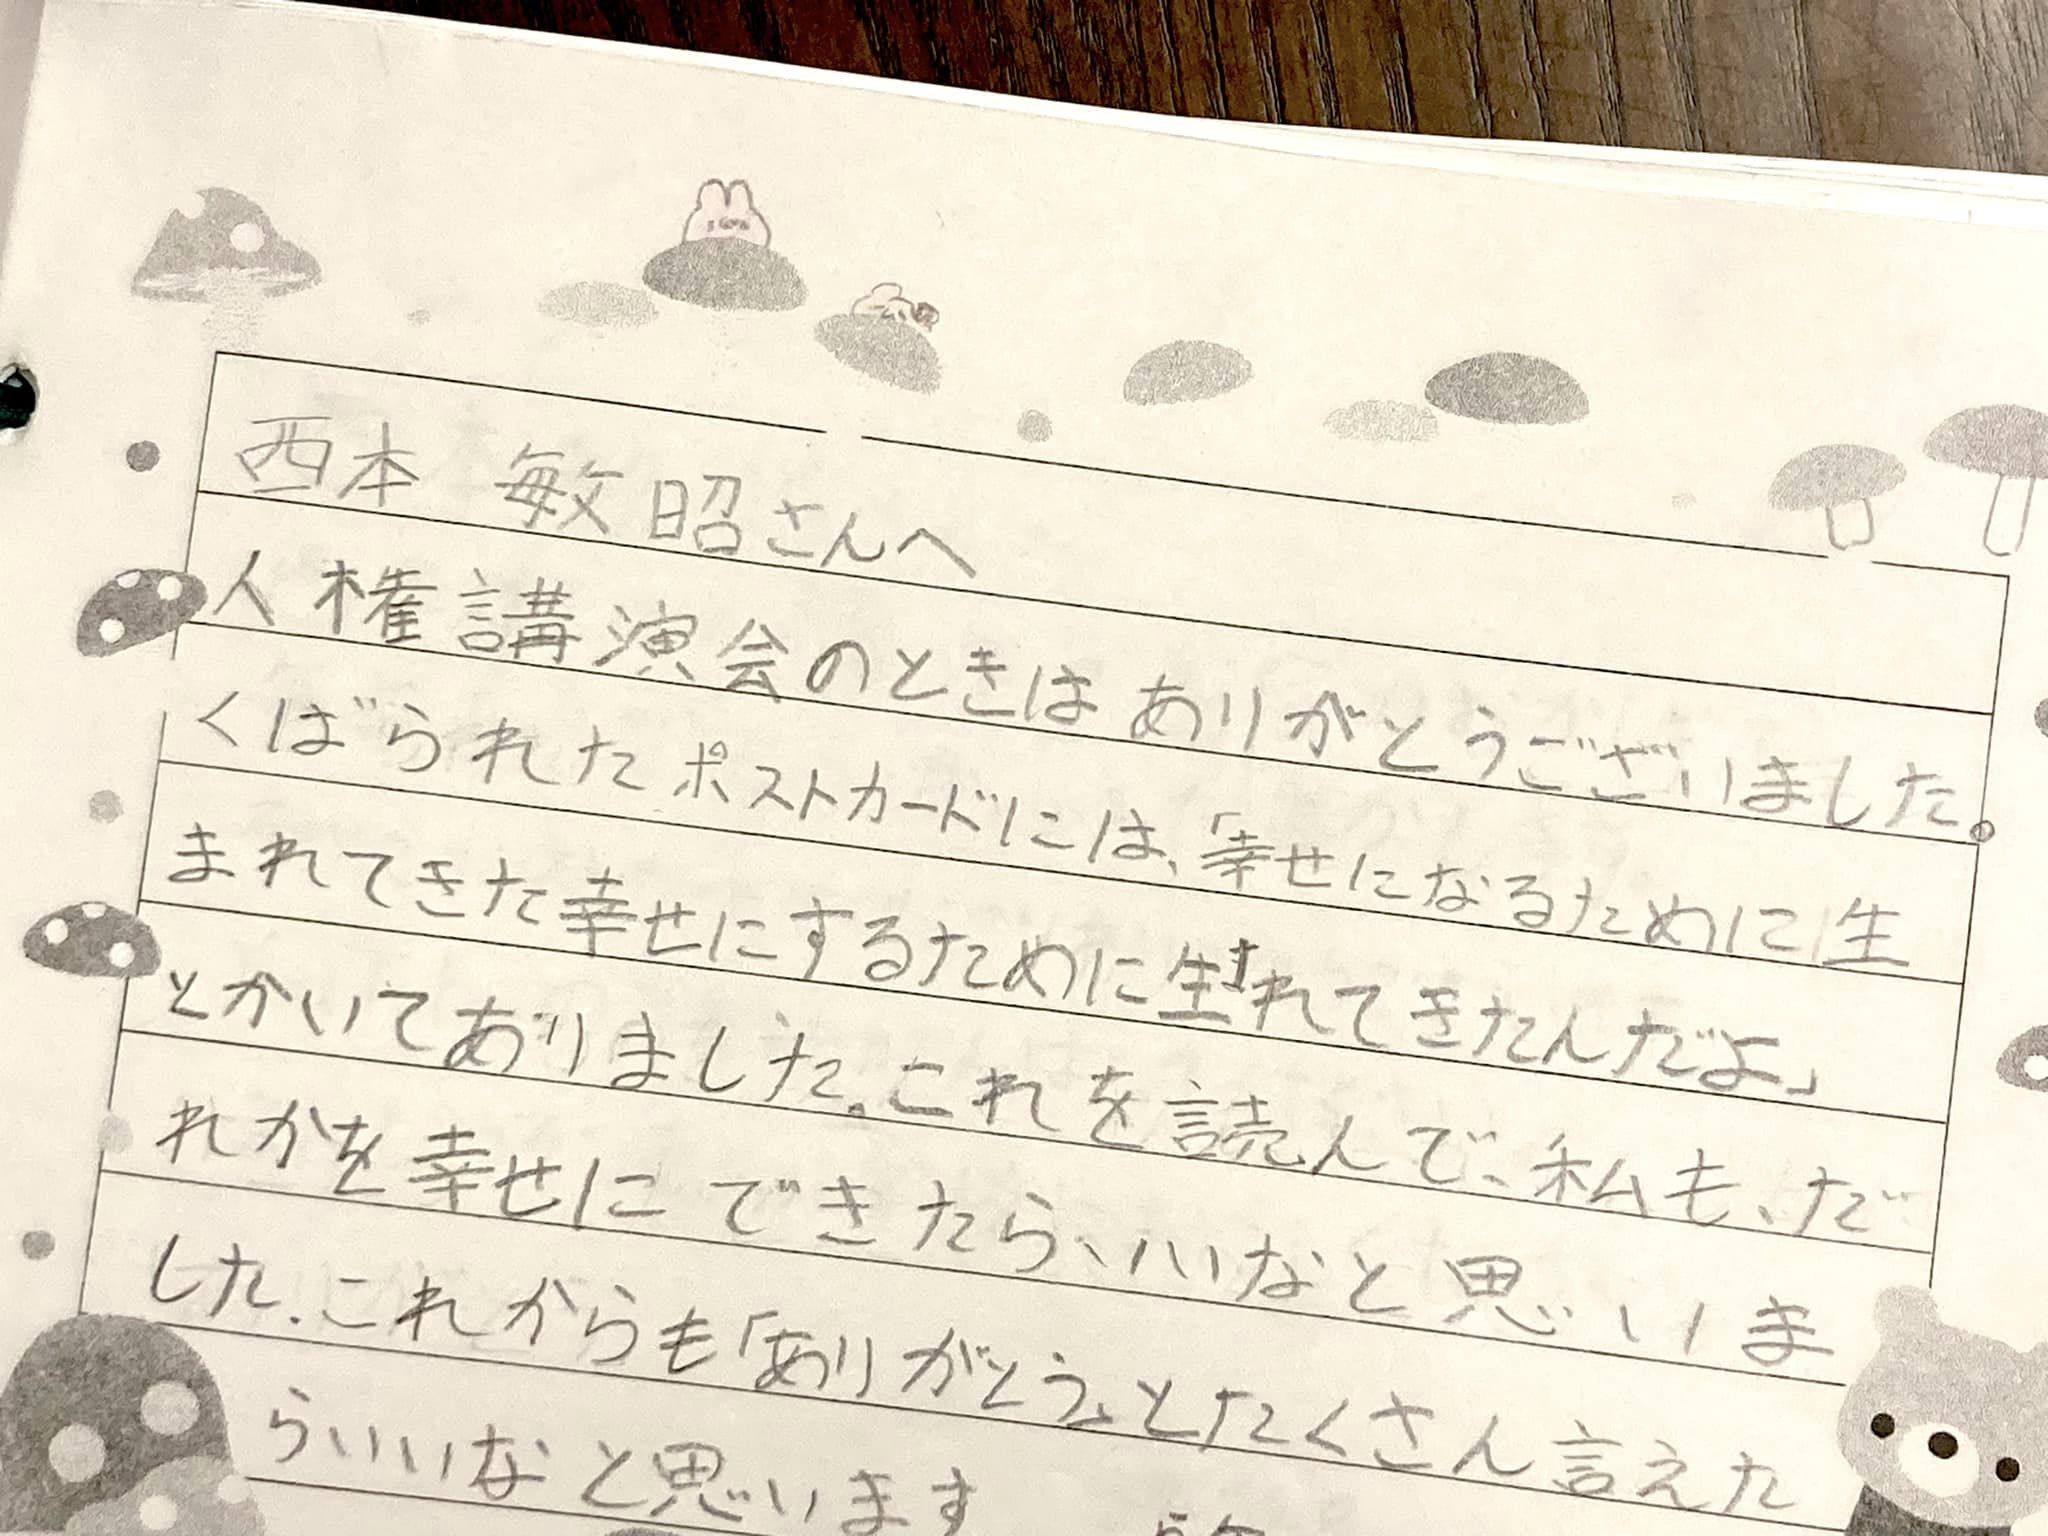 西本 敏昭さんへ
人権講演会のときは ありがとうございました。
くばられたポストカードには、「幸せになるために生
まれてきた幸せにするために生まれてきたんだよ」
とかいてありました。これを読んで、私も、だ
れかを幸せにできたら、いいなと思いま
した。これからも「ありがとう」とたくさん言えた
らいいなと思います